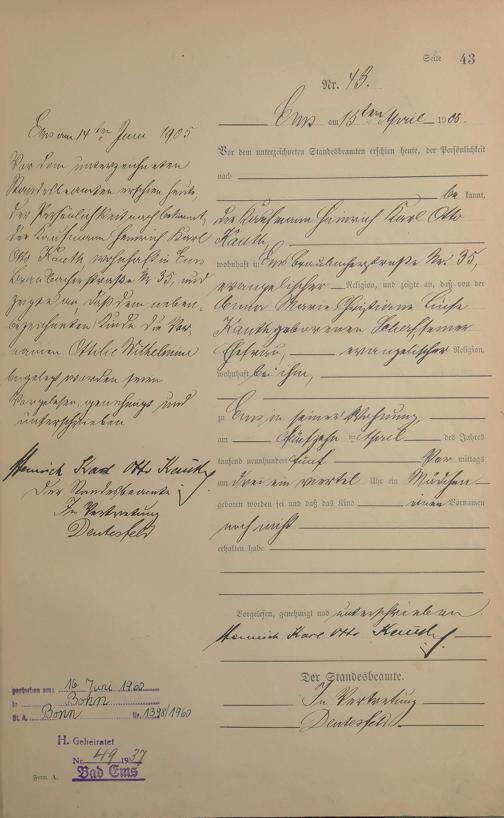 Seite 43
Nr. 43.
Ems am 15ten April 1905
Vor dem unterzeichneten Standesbeamten erschien heute, der Persönlichkeit
nach
be kannt,
der Kaufmann Heinrich Karl Otto
Kauth,
wohnhaft in Ems Braubacherstraße Nr. 35,
evangelischer Religion, und zeigte an, daß von der
Anna Marie Christiane Luise
Kauth geborenen Scharf, seiner
Ehefrau, evangelischer Religion,
wohnhaft bei ihm,
zu Ems in seiner Wohnung
am fünfzehn ten April des Jahres
tausend neunhundert fünf Vor mittags
um drei ein viertel Uhr ein Mädchen
geboren worden sei und daß das Kind einen Vornamen
noch nicht
erhalten habe.
Vorgelesen, genehmigt und unterschrieben
Heinrich Karl Otto Kauth
Der Standesbeamte.
In Vertretung
Deutesfeld
Ems am 14ten Juni 1905
Vor dem unterzeichneten
Standesbeamten erschien heute,
der Persönlichkeit nach bekannt,
der Kaufmann Heinrich Karl
Otto Kauth wohnhaft in Ems
Braubacherstraße Nr 35, und
zeigte an, daß dem neben-
bezeichneten Kinde die Vor-
namen Ottilie Wilhelmine
beigelegt worden seien
Vorgelesen, genehmigt und
unterschrieben
Heinrich Karl Otto Kauth
Der Standesbeamte
In Vertretung
Deutesfeld
gestorben am: 16 Juni 1960
in Bonn
St. A. Bonn Nr. 1398/1960
H. Geheiratet
Nr. 49 1937
Bad Ems
Form A.